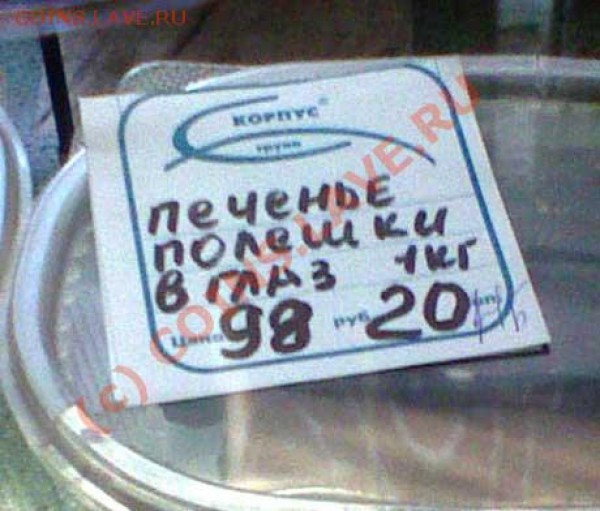 COINS.LAVE.RU
КОРПУС®
групп
ПЕЧЕНЬЕ
ПОЛЕШКИ
В ГЛАЗ 1КГ
Цена 98 руб. 20
(c) COINS.LAVE.RU